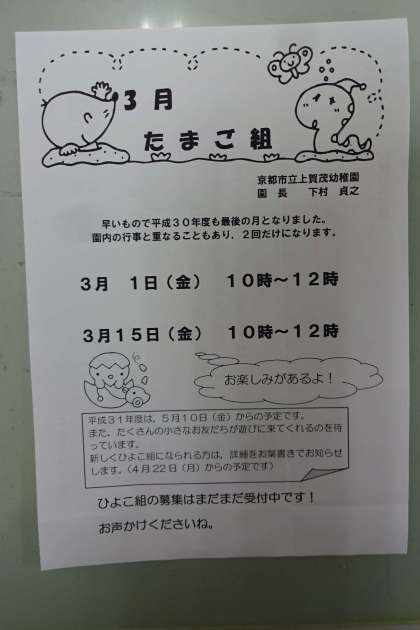 3月
たまご組
京都市立上賀茂幼稚園
園　長　　下村　貞之
早いもので平成３０年度も最後の月となりました。
園内の行事と重なることもあり、２回だけになります。
３月　１日（金）　１０時～１２時
３月１５日（金）　１０時～１２時
お楽しみがあるよ！
平成３１年度は、５月１０日（金）からの予定です。
また、たくさんの小さなお友だちが遊びに来てくれるのを待
っています。
新しくひよこ組になられる方は、詳細をお葉書きでお知らせ
します。（４月２２日（月）からの予定です）
ひよこ組の募集はまだまだ受付中です！
お声かけくださいね。